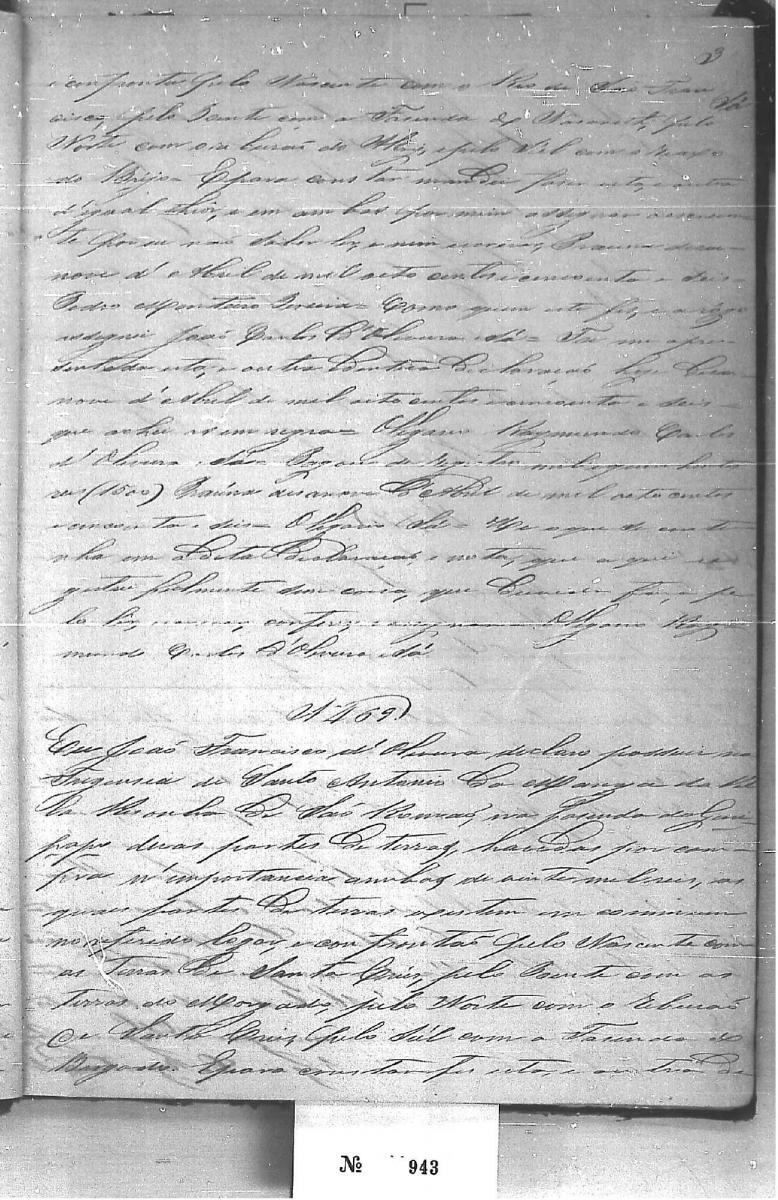 3
Sá
e confronta pelo Nascente com o Rio de São Fran
cisco, pelo Poente com a Fazenda do pelo
Norte com o ri beirão do e pelo Sul com o
do Brejo = E para constar mandei fazer esta, e outra
d'igual theor, e em am bas por mim assignar
te por eu não saber ler, e nem escrever, desa-
nove d'Abril de mil oito centos e cincoenta e seis =
Pedro Monteiro Pereira = Como quem este fiz, e a rogo
assignei João Carlos d'Oliveira e Sá = Foi me apre
sentada esta, e outra identica Declaração hoje desa-
nove d'Abril de mil oito centos e cincoenta e seis =
que achei em regra = Olegario Raymundo Carlos
d'Oliveira e Sá = Pagou de registro mil e quinhentos
reis (1500) desanove de Abril de mil oito centos
e cincoenta e seis = Olegario Sá = He o que se con ti
nha em a Dita Declaração, e nota, que a qui re
gistei fielmente sem cousa, que duvida faça, e pe
la ler, e escrever, conferi, e assignei = Olegario Ray
mundo Carlos d'Oliveira e Sá
Nº 169)
Eu João Francisco d'Oliveira declaro possuir na
Freguesia de Santo Antonio da Manga da Vi
la Risonha de São Romão, na Fazenda do Geni
papo duas partes de terras, havidas por com
pra n'importancia ambas de vinte mil reis, as
quais partes de terras existem em commum
no referido logar, e con frontão pelo Nascente com
as terras de Santa Cruz, pelo Poente com as
terras do Morgado, pelo Norte com o Ribeirão
de Santa Cruz, pelo Sul com a Fazenda do
E para constar fiz esta, e ou tra de
Nº 943